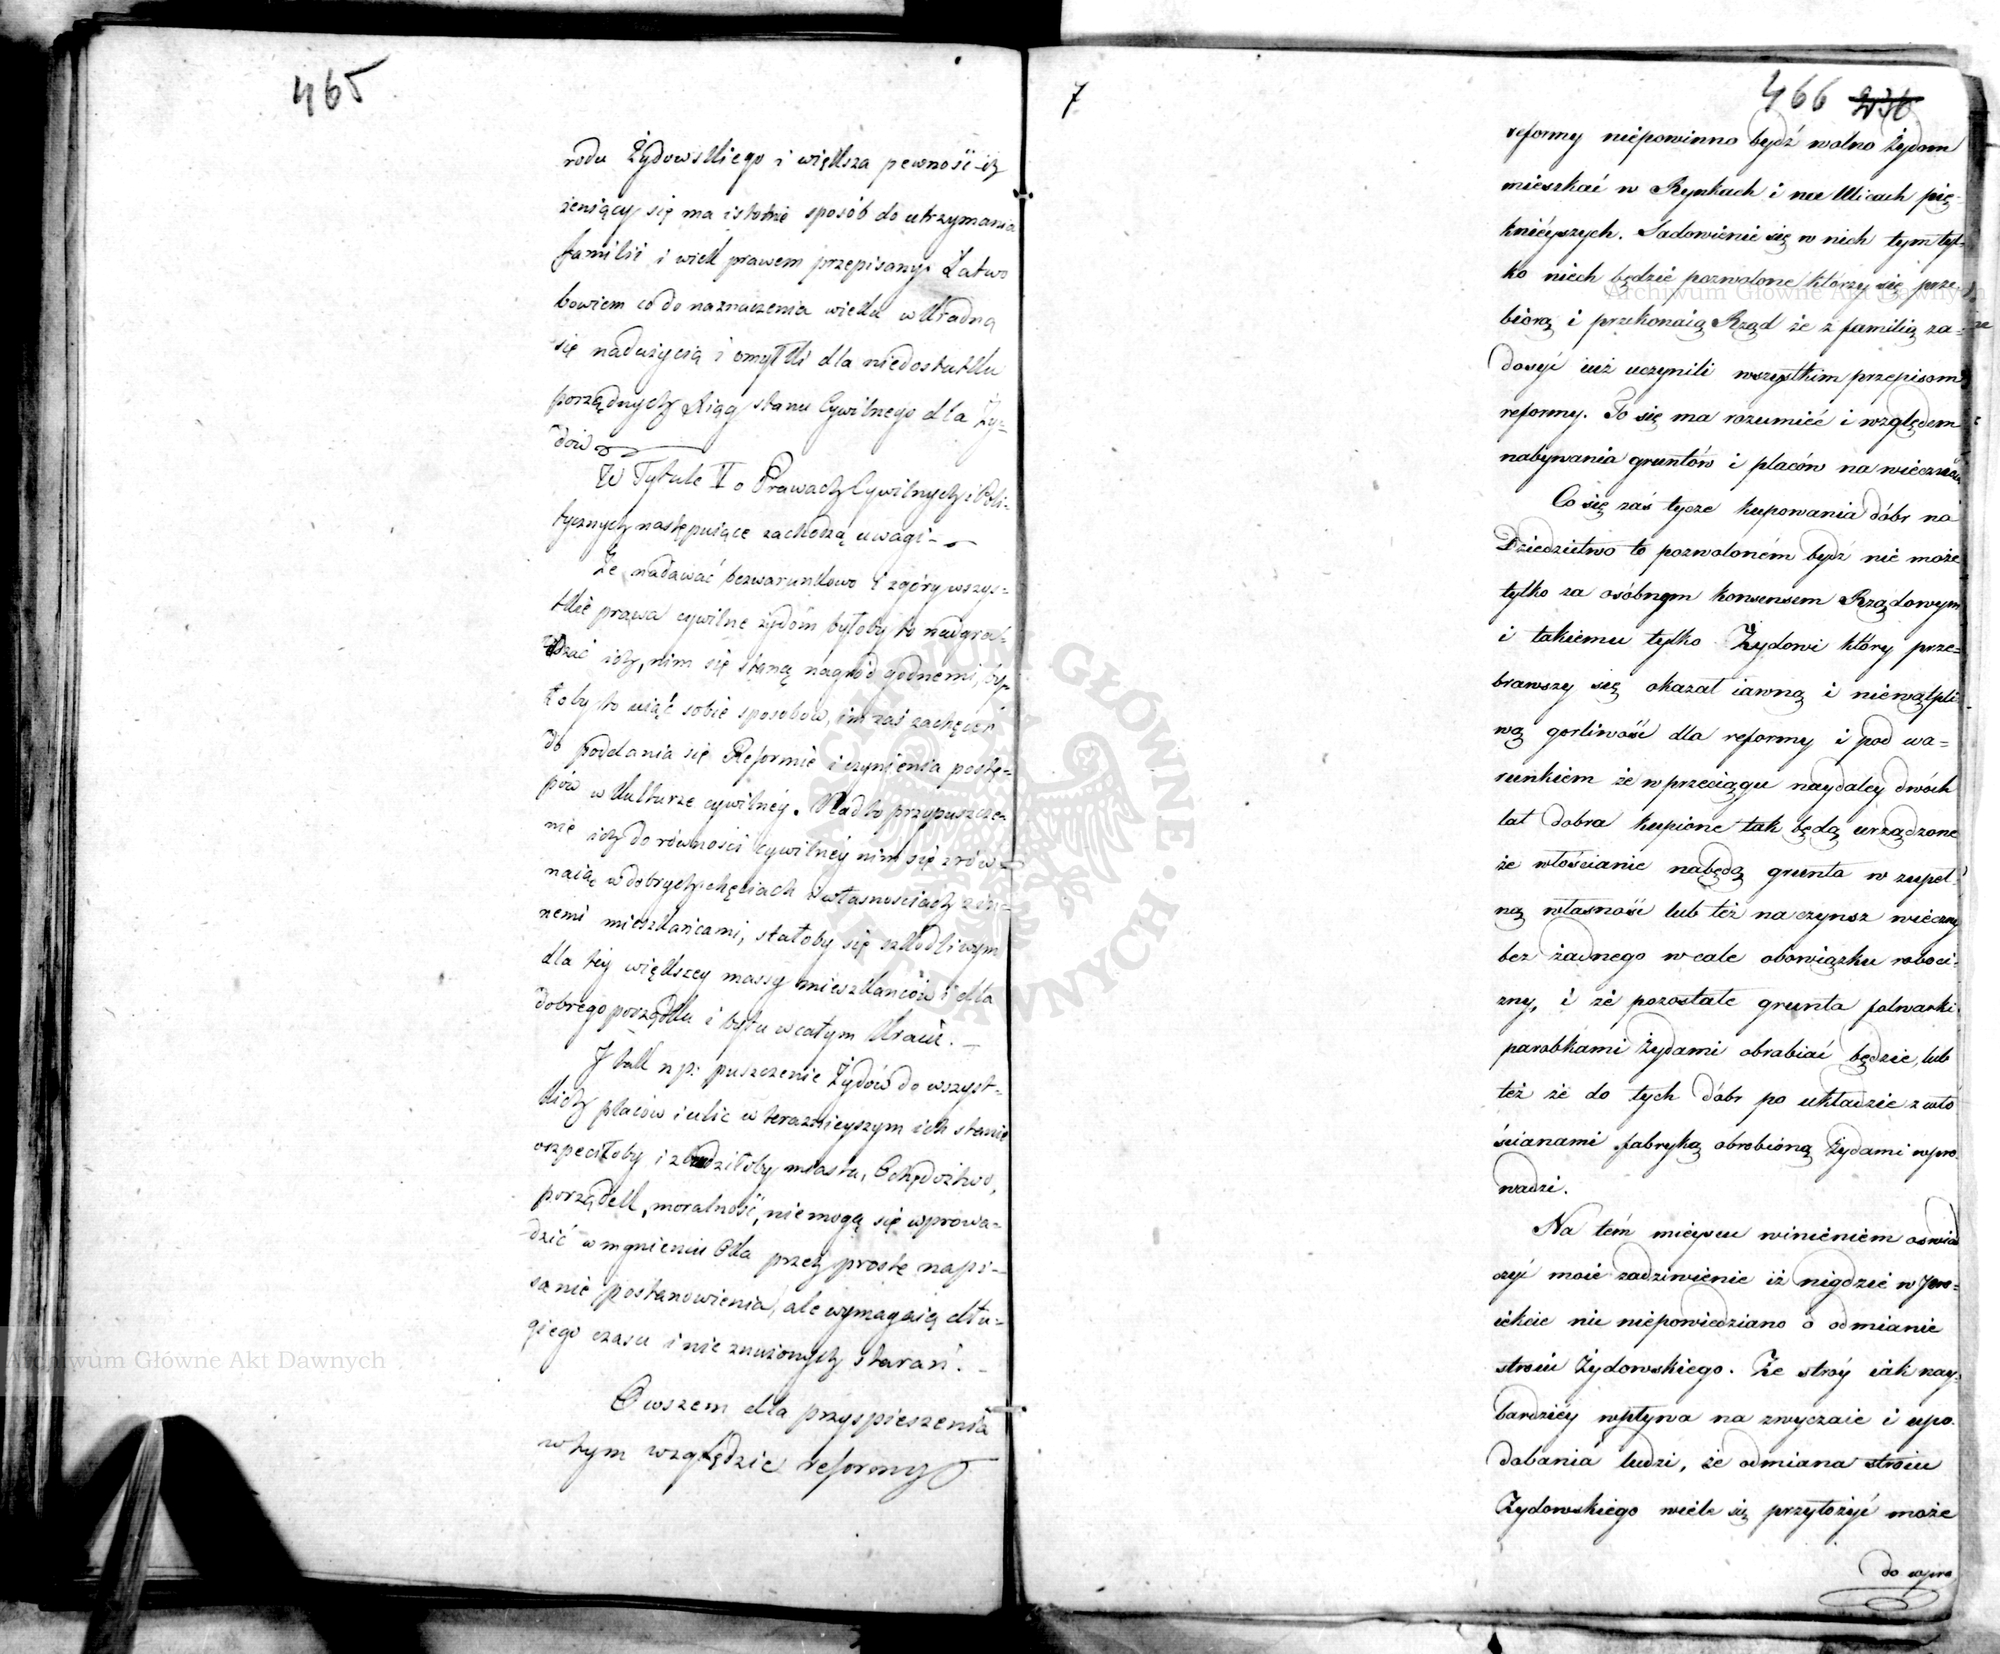 465
rodu Żydowskiego i większa pewność iż
żeniący się ma istotnie sposób do utrzymania
familii i wiek prawem przepisany. Łatwo
bowiem co do naznaczenia wieku wkradną
się nadużycia i omyłki dla niedostatku
porządnych Xiąg stanu Cywilnego dla Ży-
dów
W Tytule II o Prawach Cywilnych i Poli-
tycznych następuiące zachodzą uwagi
Że nadawać bezwarunkowo i zgóry wszys-
tkie prawa cywilne żydóm byłoby to nadgra-
dzać ich, nim się staną nagród godnemi, by-
łoby to uiąć sobie sposobów, im zaś zachęceń
do poddania się Reformie i czynienia postę-
pów w kulturze cywilnéy. Nadto przypuszcze-
nie ich do równości cywilnéy nim się zrów-
naią w dobrych chęciach i własnościach z in-
nemi mieszkańcami, stałoby się szkodliwym
dla téy większey massy mieszkanców i dla
dobrego porządku i bytu w całym kraiu.
I tak np: puszczenie Żydów do wszyst-
kich placów i ulic w teraznieyszym ich stanie
oszpeciłoby i zbrudziłoby miasta, Ochędoztwo,
porządek, moralność, nie mogą się wprowa-
dzić w mgnieniu Oka przez proste napi-
sanie postanowienia, ale wymagaią dłu-
giego czasu i nie znużonych starań.
Owszem dla przyspieszenia
w tym względzie reformy
7
466 236
reformy niepowinno bydź wolno Żydom
mieszkać w Rynkach i na Ulicach pię-
knieyszych. Sadowienie się w nich tym tyl-
ko niech będzie pozwolone którzy się prze-
biorą i przekonaią Rząd że z familią za-
dosyć iuż uczynili wszystkim przepisom
reformy. To się ma rozumieć i względem
nabywania gruntów i placów na wieczność
Co się zaś tycze kupowania dóbr na
Dziedzictwo to pozwoloném bydź nie może
tylko za osóbnym konsensem Rządowym
i takiemu tylko Żydowi który prze-
brawszy się okazał iawną i niewątpli-
wą gorliwość dla reformy i pod wa-
runkiem że w przeciągu naydaley dwóch
lat dobra kupione tak będą urządzone
że włościanie nabędą grunta w zupeł-
ną własność lub też na czynsz wieczny
bez żadnego wcale obowiązku roboci-
zny, i że pozostałe grunta folwarki
parobkami Żydami obrabiać będzie, lub
też że do tych dóbr po układzie z wło
ścianami fabrykę obrobioną Żydami wpro-
wadzi.
Na tém mieyscu winieniem oswiad
czyć moie zadziwienie iż nigdzie w Pro-
iekcie nic niepowiedziano o odmianie
stroiu Żydowskiego. Że stróy iak nay-
bardziey wpływa na zwyczaie i upo-
dobania ludzi, że odmiana stroiu
Żydowskiego wiele się przyłożyć może
do wpro
Archiwum Główne Akt Dawnych
Archiwum Główne Akt Dawnych
ARCHIWUM GŁÓWNE AKT DAWNYCH